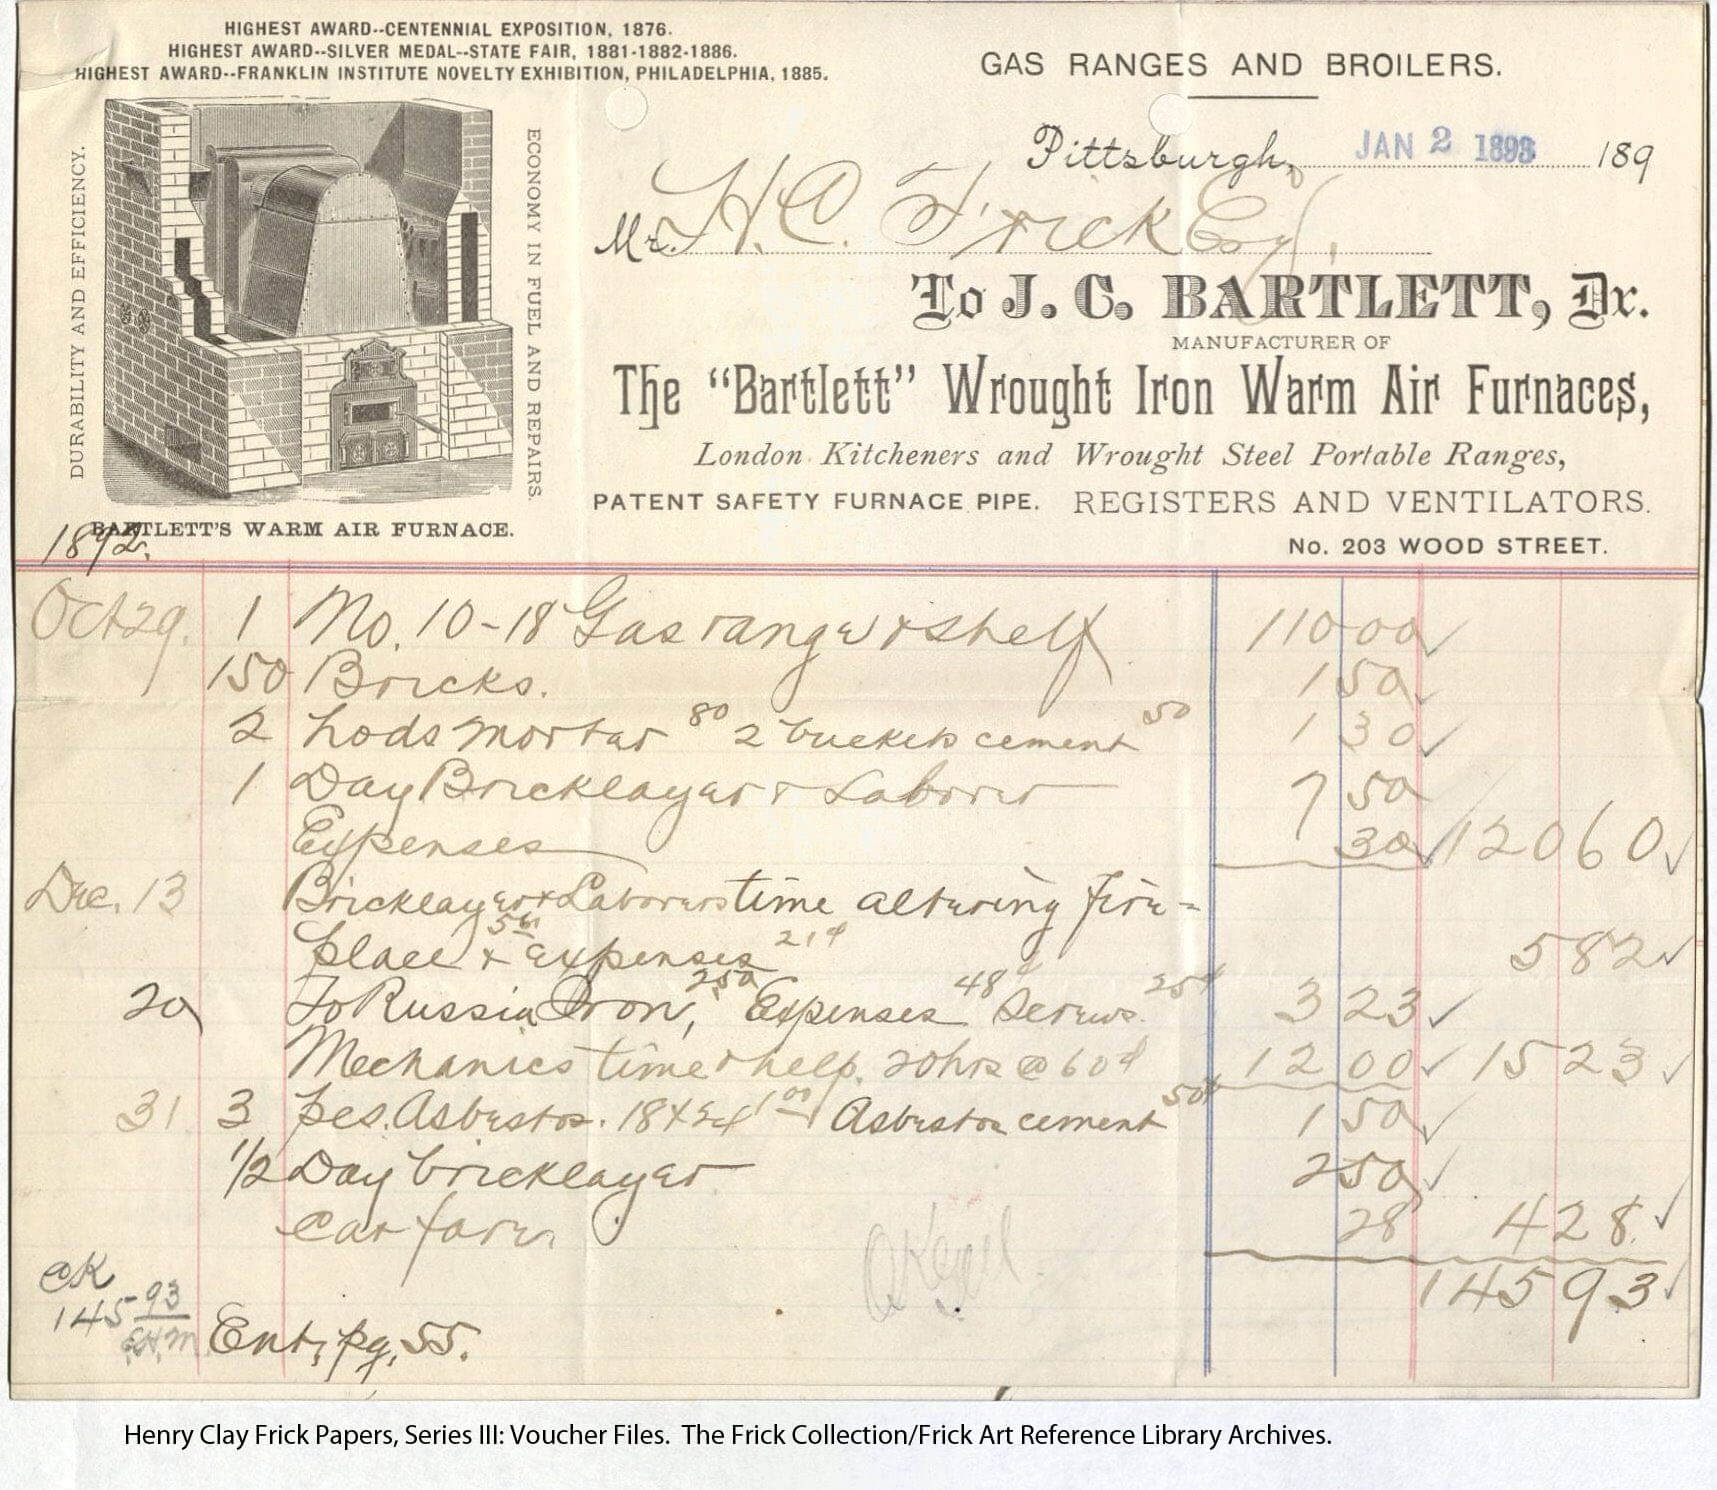 HIGHEST AWARD--CENTENNIAL EXPOSITION, 1876.
HIGHEST AWARD--SILVER MEDAL--STATE FAIR, 1881-1882-1886.
HIGHEST AWARD--FRANKLIN INSTITUTE NOVELTY EXHIBITION, PHILADELPHIA, 1885.
DURABILITY AND EFFICIENCY.
ECONOMY IN FUEL AND REPAIRS.
BARTLETT'S WARM AIR FURNACE.
GAS RANGES AND BROILERS.
Pittsburgh, JAN 2 1893 189
Mr. H.C. Frick Esq.
To J. C. BARTLETT, Dr.
MANUFACTURER OF
The "Bartlett" Wrought Iron Warm Air Furnaces,
London Kitcheners and Wrought Steel Portable Ranges,
PATENT SAFETY FURNACE PIPE. REGISTERS AND VENTILATORS.
No. 203 WOOD STREET.
1892.
Oct 29. 1 No. 10-18 Gas range & shelf 110 00
150 Bricks. 1 50
2 hods mortar 80 2 buckets cement 50 1 30
1 Day Bricklayer & Laborer 7 50
Expenses 30 120 60
Dec. 13 Bricklayer & Laborers time altering fire-
place & expenses 21¢ 5 82
20 To Russia Iron, 2.50 Expenses 48¢ Screws. 25¢ 3 23
Mechanics time & help. 20 hrs @ 60¢ 12 00 15 23
31 3 pcs. Asbestos. 1 00 Asbestos cement 50¢ 1 50
1/2 Day bricklayer 2 50
Car fare 28 4 28
145 93
CK
145 93
Ent, pg, 55.
Henry Clay Frick Papers, Series III: Voucher Files. The Frick Collection/Frick Art Reference Library Archives.